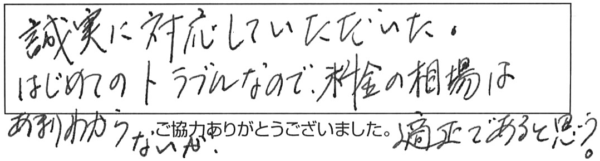 誠実に対応していただいた。
はじめてのトラブルなので、料金の相場は
あまりわからないが、適正であると思う。
ご協力ありがとうございました。